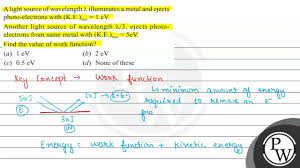 A light source of wavelength λ illuminates a metal and ejects
photo-electrons with (K.E.)max = 1 eV
Another light source of wavelength λ/3, ejects photo-
electrons from same metal with (K.E.)max = 5eV.
Find the value of work function?
(a) 1 eV (b) 2 eV
(c) 0.5 eV (d) None of these
Key Concept → Work function
50J 20J → (K.E.)
↳ minimum amount of energy
required to remove an e⁻
E
30J
Energy = work function + kinetic energy
PW